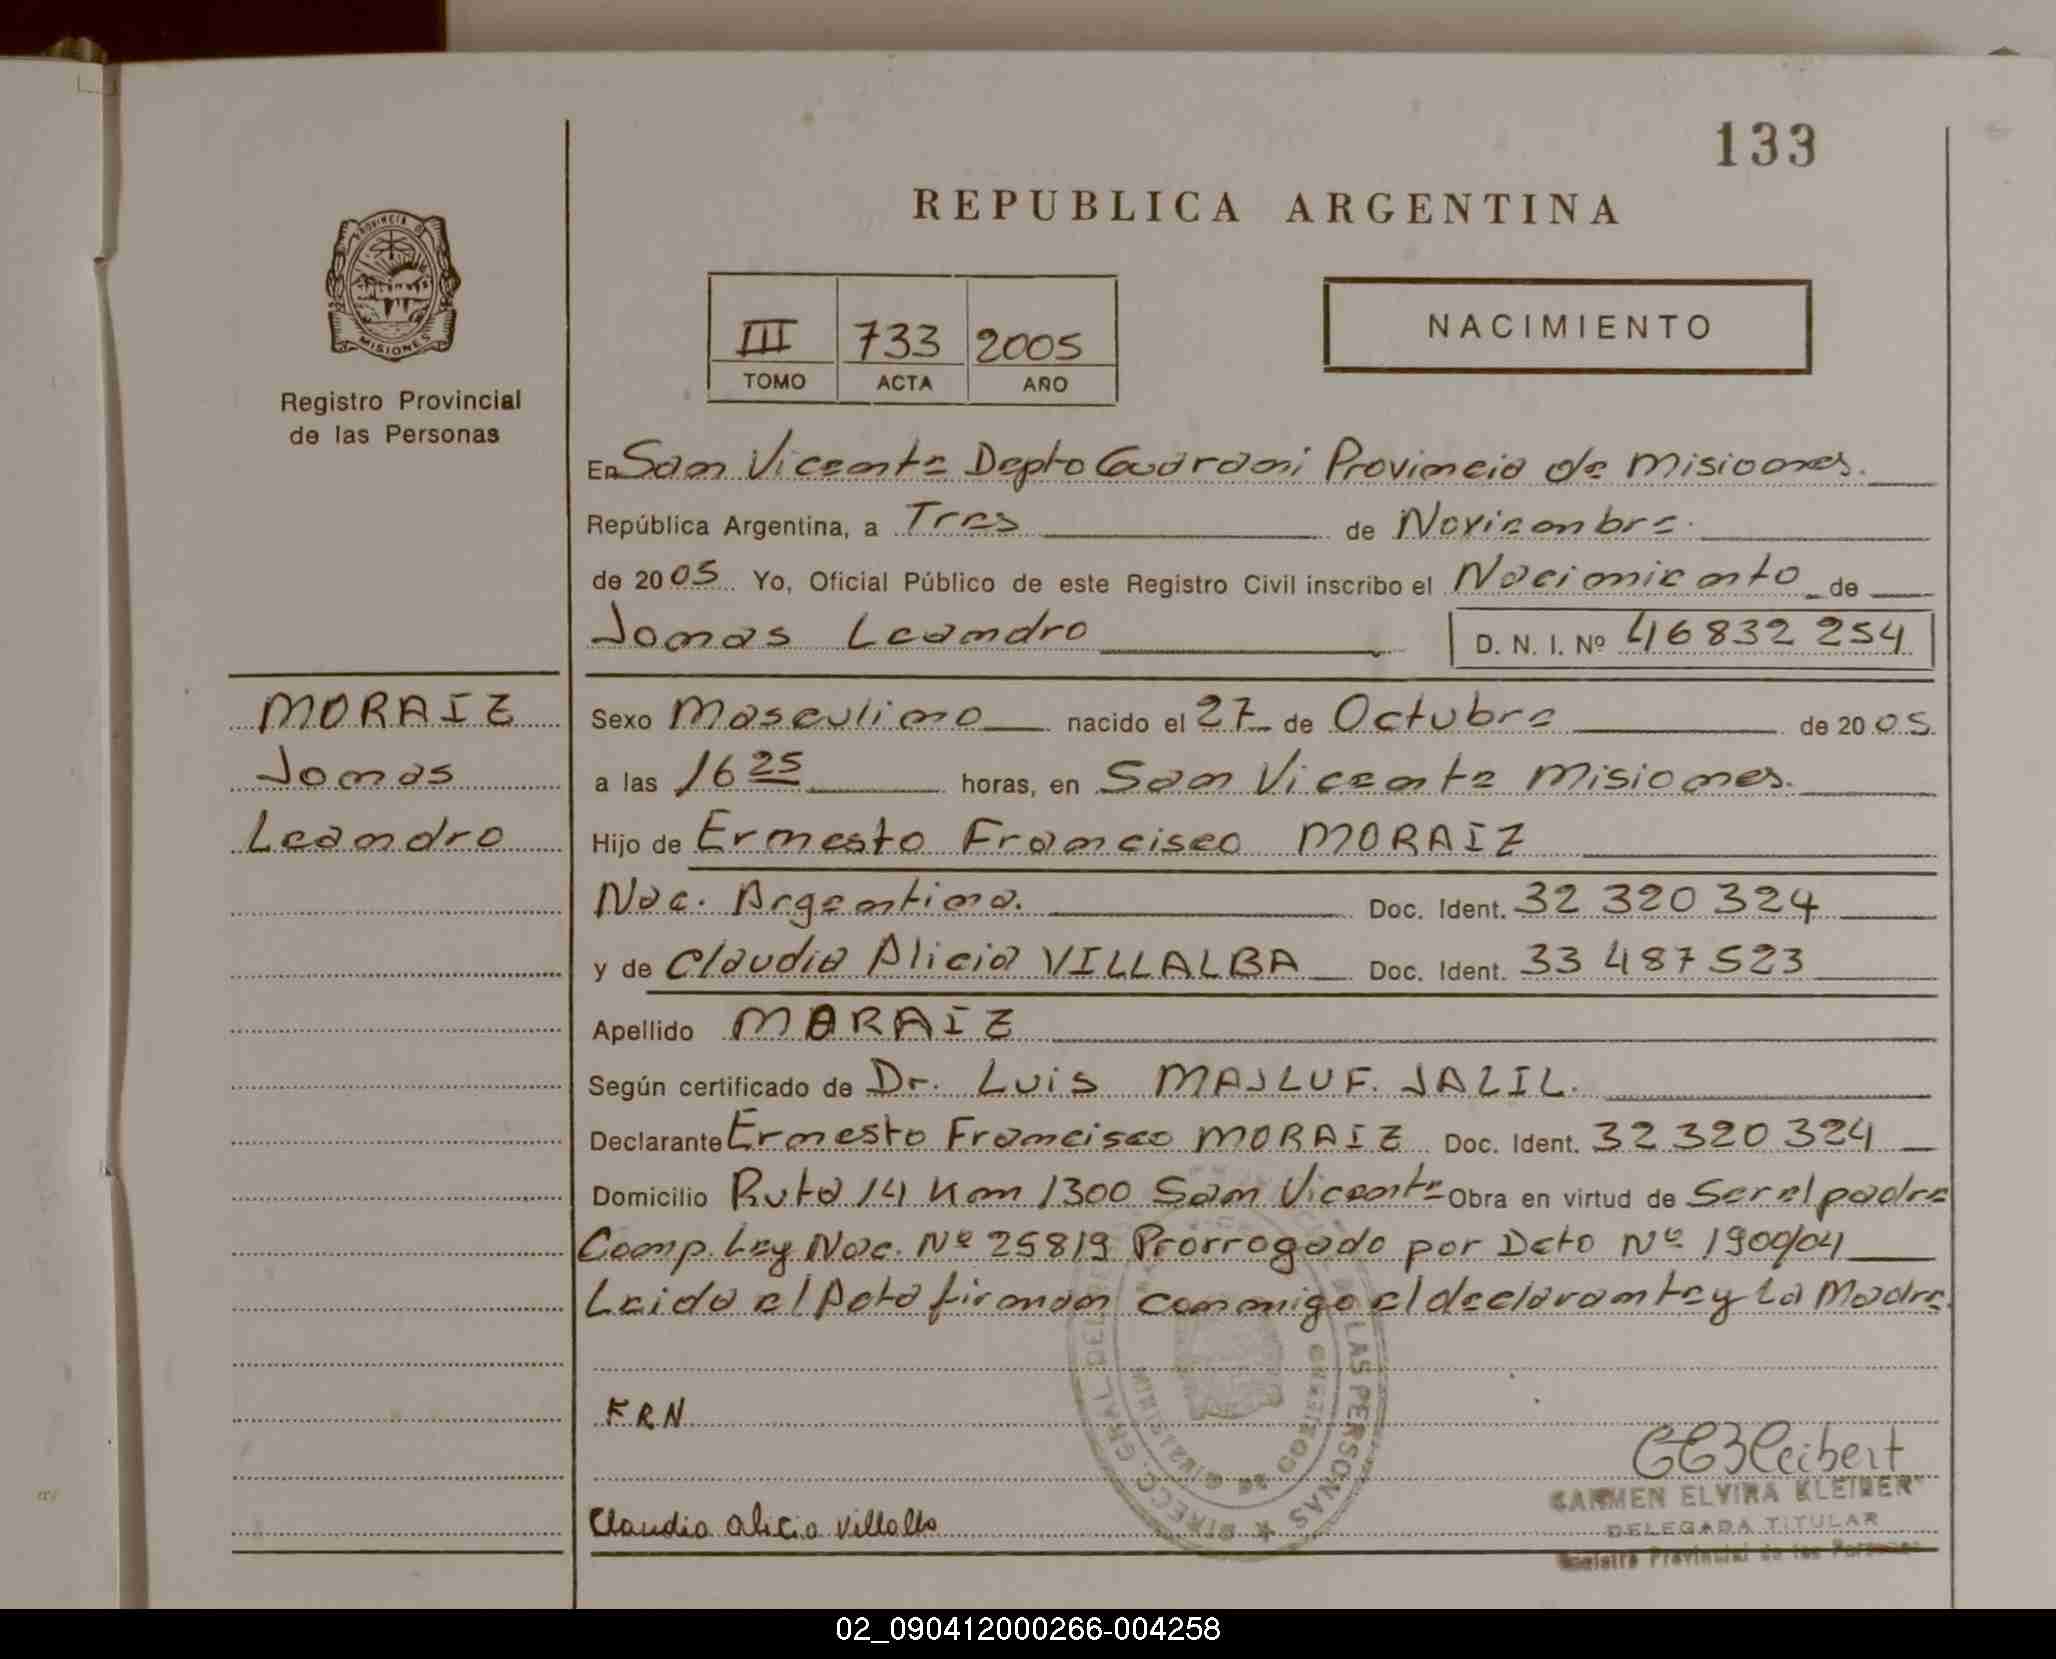 133
REPUBLICA ARGENTINA
PROVINCIA D
MISIONES
Registro Provincial
de las Personas
III 733 2005
TOMO ACTA AÑO
NACIMIENTO
En San Vicente Depto Guarani Provincia de Misiones.
República Argentina, a Tres de Noviembre.
de 2005 Yo, Oficial Público de este Registro Civil inscribo el Nacimiento de
Jonas Leandro D. N. I. Nº 46832254
MORAIZ
Jonas
Leandro
Sexo Masculino nacido el 27 de Octubre de 2005.
a las 16 25 horas, en San Vicente Misiones.
Hijo de Ernesto Francisco MORAIZ
Nac. Argentina. Doc. Ident. 32 320 324
y de Claudia Alicia VILLALBA Doc. Ident. 33 487 523
Apellido MORAIZ
Según certificado de Dr. Luis MAJLUF. JALIL.
Declarante Ernesto Francisco MORAIZ Doc. Ident. 32 320 324
Domicilio Ruta 14 Km 1300 San Vicente Obra en virtud de Ser el padre
Comp. Ley Nac. Nº 25819 Prorrogado por Dcto Nº 1900/04
Leida el Acta firman conmigo el declarante y La Madre.
FRN
Claudia alicia villalba
CARMEN ELVIRA KLEIBER
DELEGADA TITULAR
Registro Provincial de las Personas
DIRECC. GRAL DEL LAS PERSONAS
MINISTERIO DE GOBIERNO
02_090412000266-004258